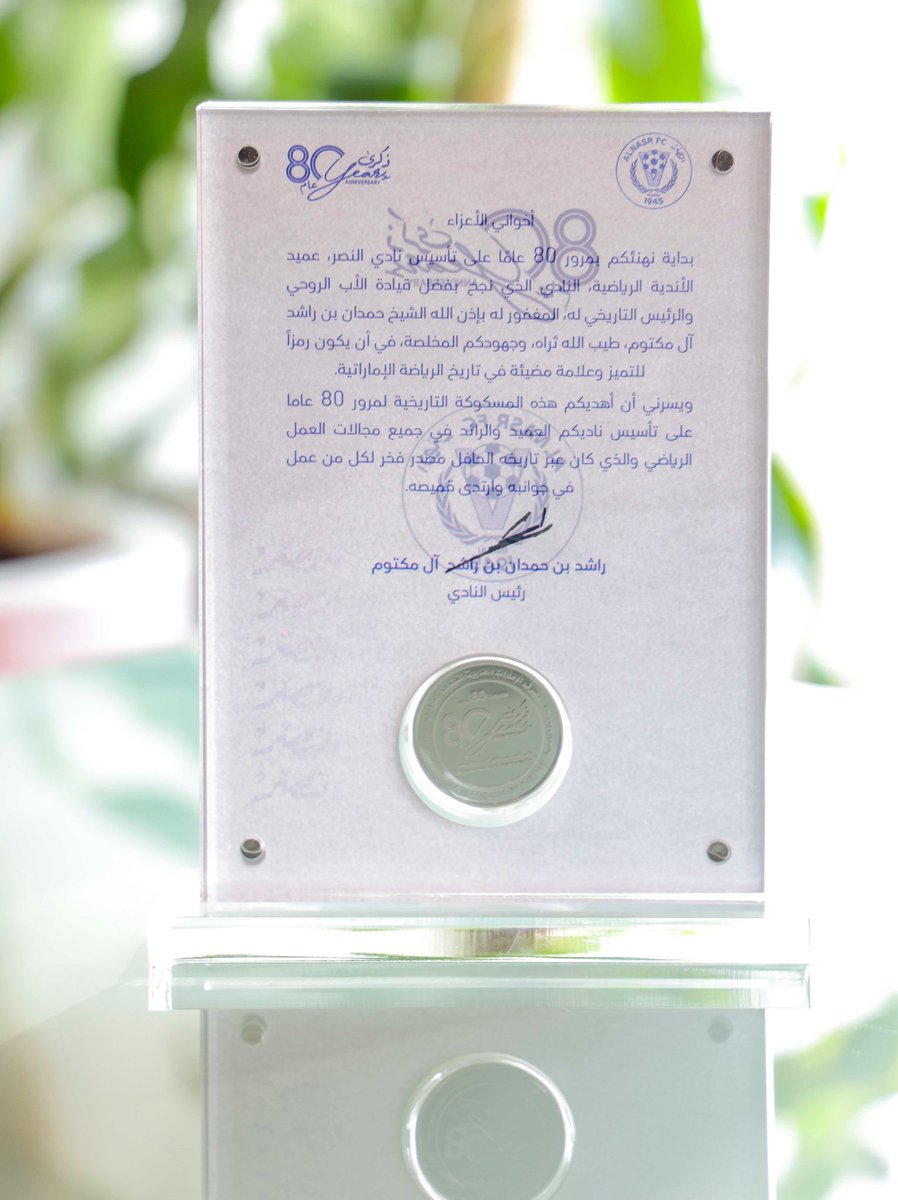 80 Years ذكرى
عام ANNIVERSARY
ALNASR FC
1945
أخواني الأعزاء
بداية نهنئكم بمرور 80 عامًا على تأسيس نادي النصر، عميد
الأندية الرياضية، النادي الذي نجح بفضل قيادة الأب الروحي
والرئيس التاريخي له، المغفور له بإذن الله الشيخ حمدان بن راشد
آل مكتوم، طيب الله ثراه، وجهودكم المخلصة، في أن يكون رمزاً
للتميز وعلامة مضيئة في تاريخ الرياضة الإماراتية.
ويسرني أن أهديكم هذه المسكوكة التاريخية لمرور 80 عاما
على تأسيس ناديكم العميد والرائد في جميع مجالات العمل
الرياضي والذي كان عبر تاريخه الحافل مصدر فخر لكل من عمل
في جوانبه وارتدى قميصه.
راشد بن حمدان بن راشد آل مكتوم
رئيس النادي
80 Years